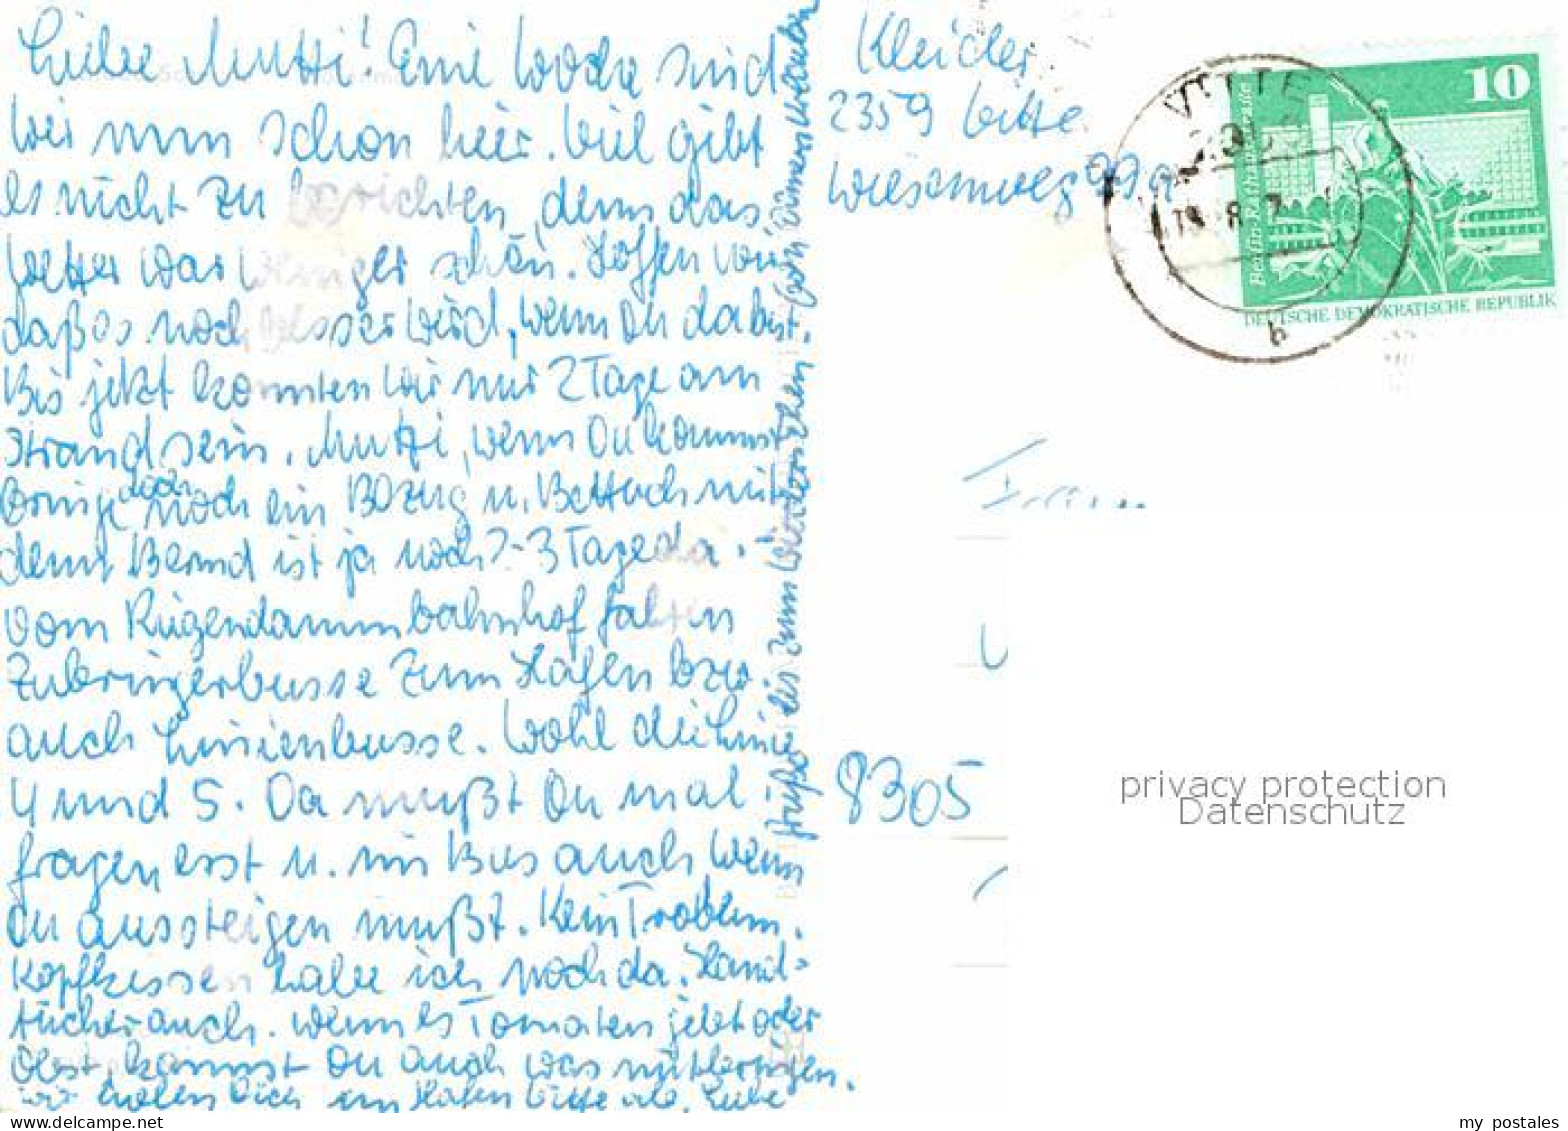 Liebe Mutti! Eine Woche sind
wir nun schon hier. Viel gibt
es nicht zu berichten, denn das
Wetter war weniger schön. Hoffen wir
daß es noch besser wird, wenn Du da bist.
Bis jetzt konnten wir nur 2 Tage am
Strand sein. Mutti, wenn Du kommst
bringe doch noch ein Bezug u. Bettuch mit
denn Bernd ist ja noch 2-3 Tage da.
Vom Rügendammbahnhof fahren
Zubringerbusse zum Hafen bzw.
auch Linienbusse. Wohl die Linie
4 und 5. Da mußt Du mal
fragen erst u. im Bus auch wenn
Du aussteigen mußt. Kein Problem.
Kopfkissen habe ich noch da. Hand-
tücher auch. Wenn es Tomaten jetzt oder
Obst kannst Du auch was mitbringen.
Wir holen Dich im Hafen bitte ab. Liebe
Grüße bis zum Wiedersehen.
2359 Vitte
Wiesenweg 99
VITTE
18.8.7
b
10
DEUTSCHE DEMOKRATISCHE REPUBLIK
8305
privacy protection
Datenschutz
www.delcampe.net
my_postales